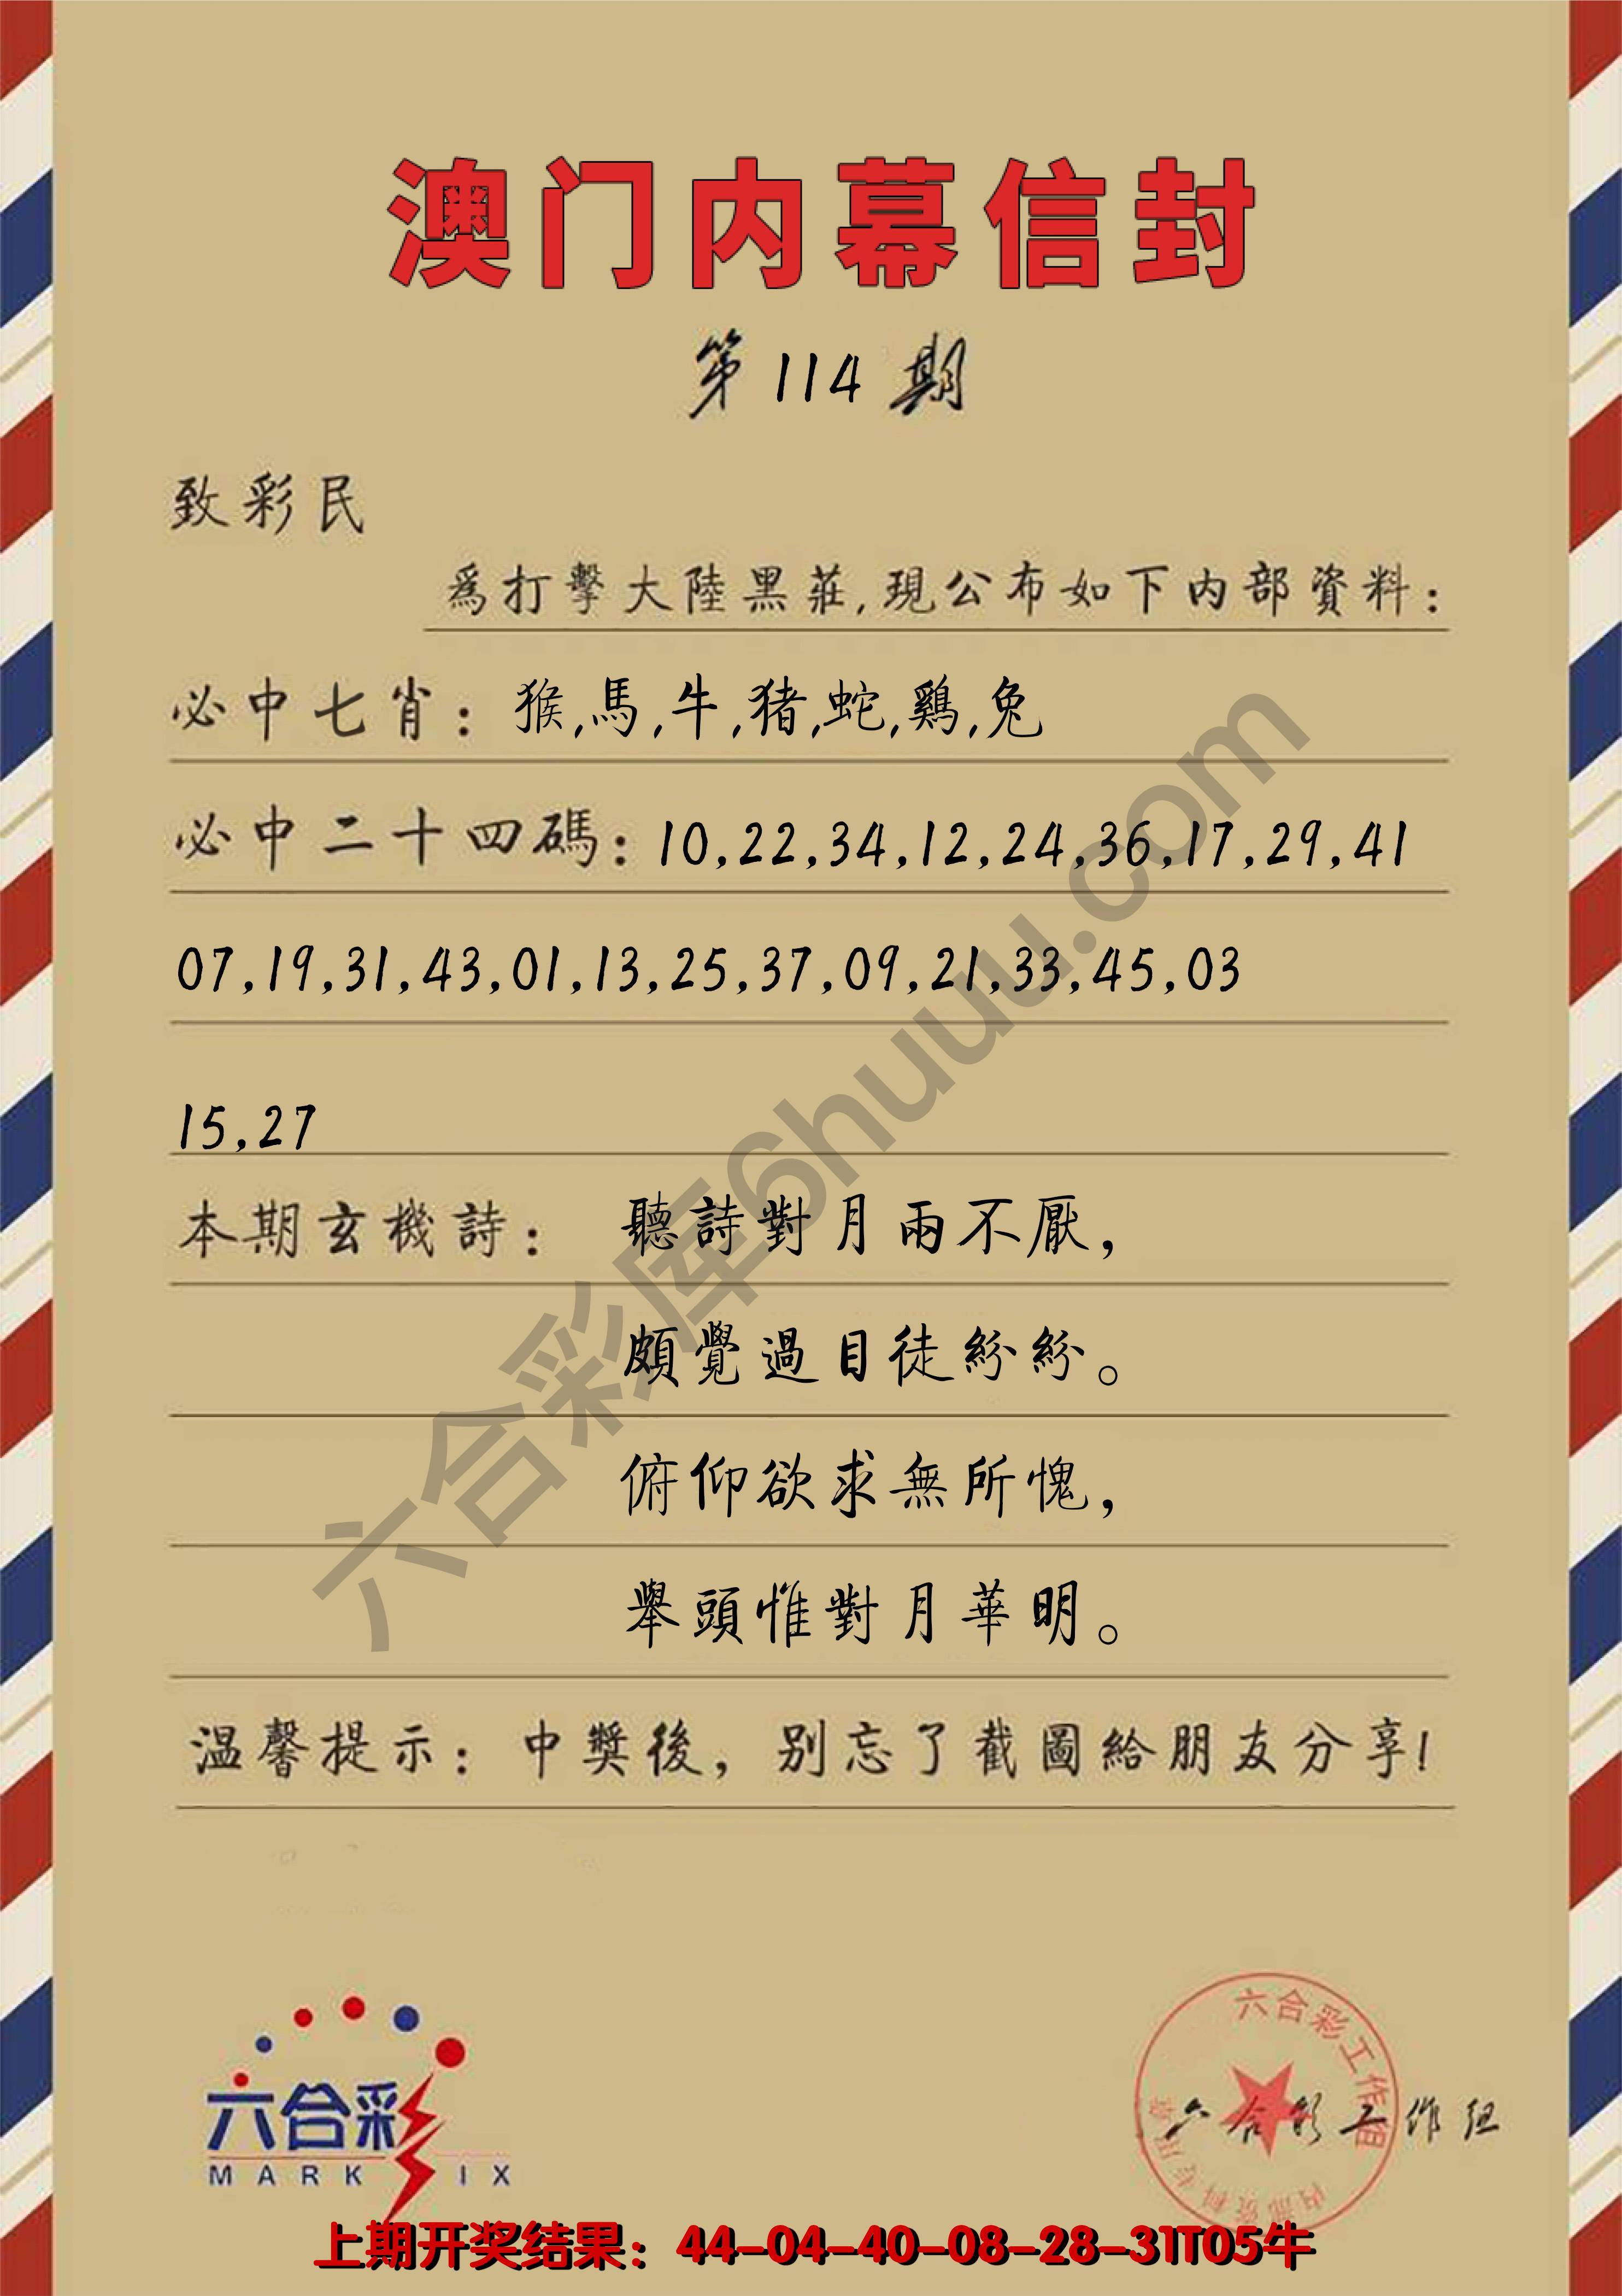 澳门内幕信封
第114期
致彩民
為打擊大陸黑莊,現公布如下内部資料:
必中七肖: 猴,馬,牛,猪,蛇,鷄,兔
必中二十四碼: 10,22,34,12,24,36,17,29,41
07,19,31,43,01,13,25,37,09,21,33,45,03
15,27
本期玄機詩: 聽詩對月兩不厭,
頗覺過目徒紛紛。
俯仰欲求無所愧,
舉頭惟對月華明。
温馨提示: 中獎後, 别忘了截圖給朋友分享!
六合彩库6huuu.com
六合彩
MARK IX
六合彩工作组
六合彩工作组
上期开奖结果: 44-04-40-08-28-31T05牛